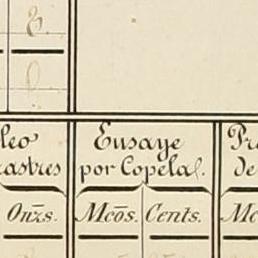 leo
rastres
Onz̃s.
Ensaye
por Copela.
Mc̃os. Cents.
Pr
de
Mc